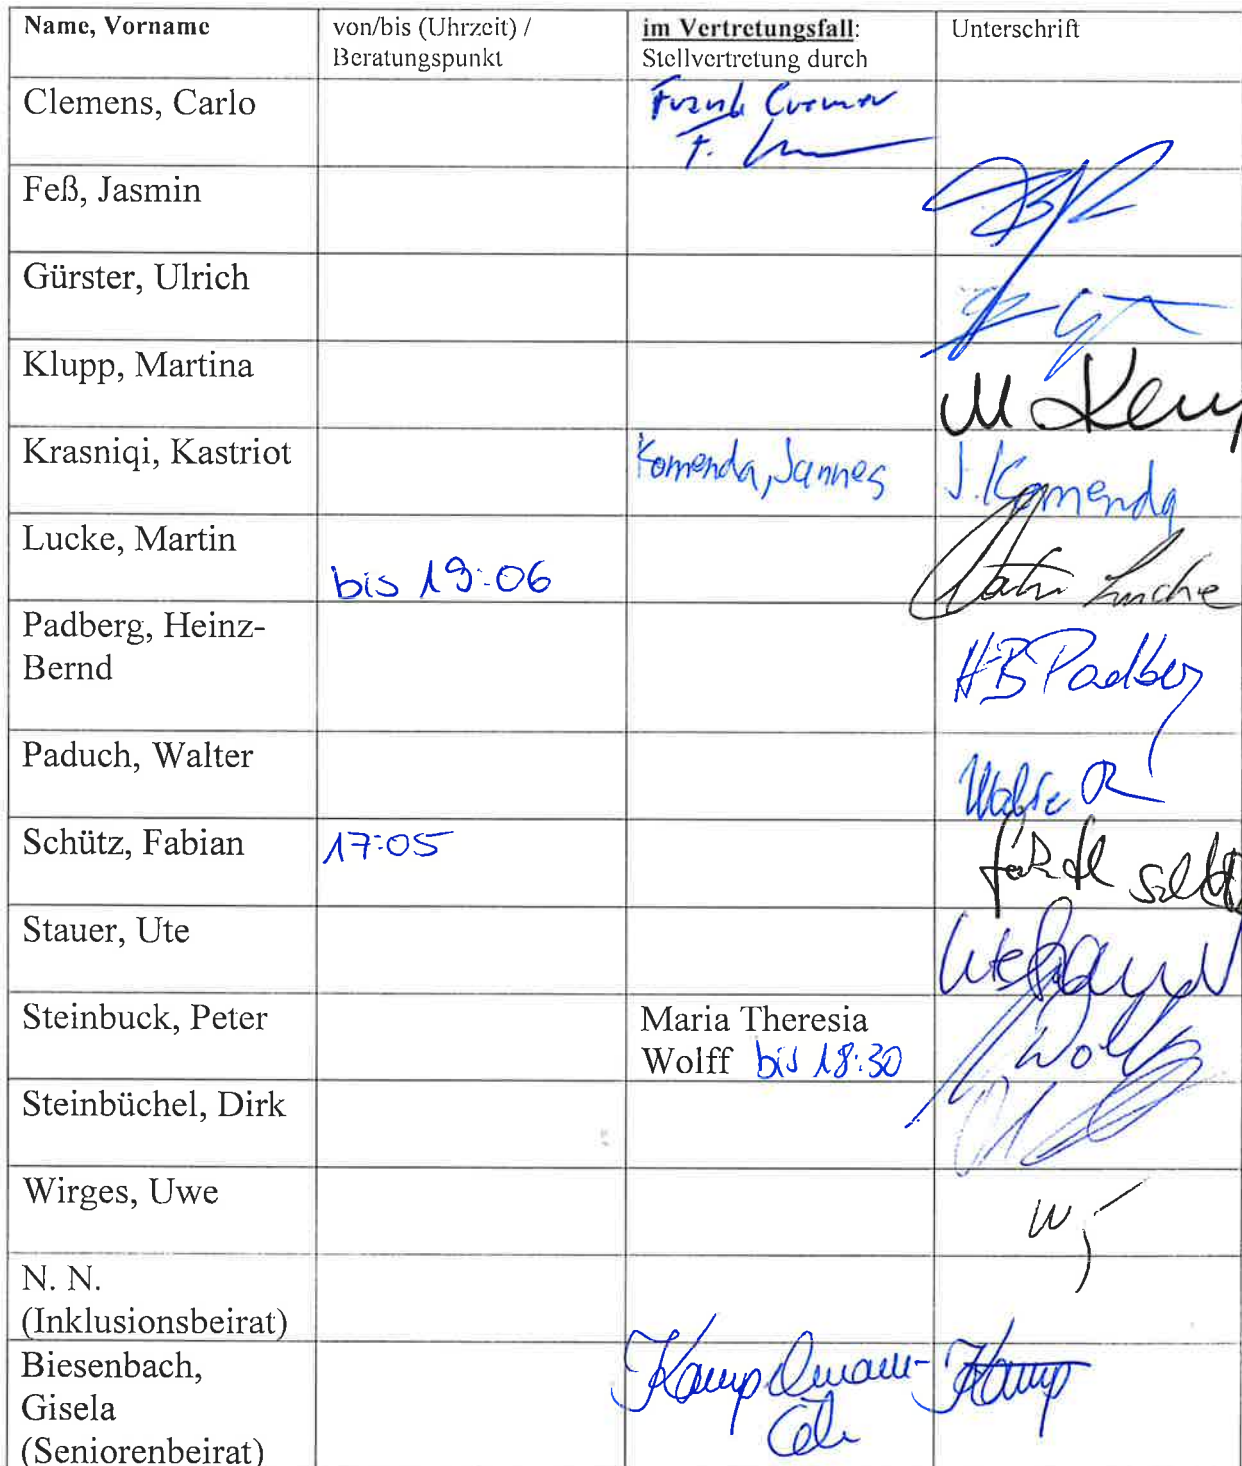 Name, Vorname
von/bis (Uhrzeit) /
Beratungspunkt
im Vertretungsfall:
Stellvertretung durch
Unterschrift
Clemens, Carlo
Frank Cremer
F.
Feß, Jasmin
Gürster, Ulrich
Klupp, Martina
M
Krasniqi, Kastriot
Komenda, Jannes
J. Komenda
Lucke, Martin
bis 19:06
Martin Lucke
Padberg, Heinz-
Bernd
HB Padberg
Paduch, Walter
Walter
Schütz, Fabian
17:05
Stauer, Ute
Ute Stauer
Steinbuck, Peter
Maria Theresia
Wolff bis 18:30
Wolff
Steinbüchel, Dirk
Wirges, Uwe
N. N.
(Inklusionsbeirat)
Biesenbach,
Gisela
(Seniorenbeirat)
Kamp